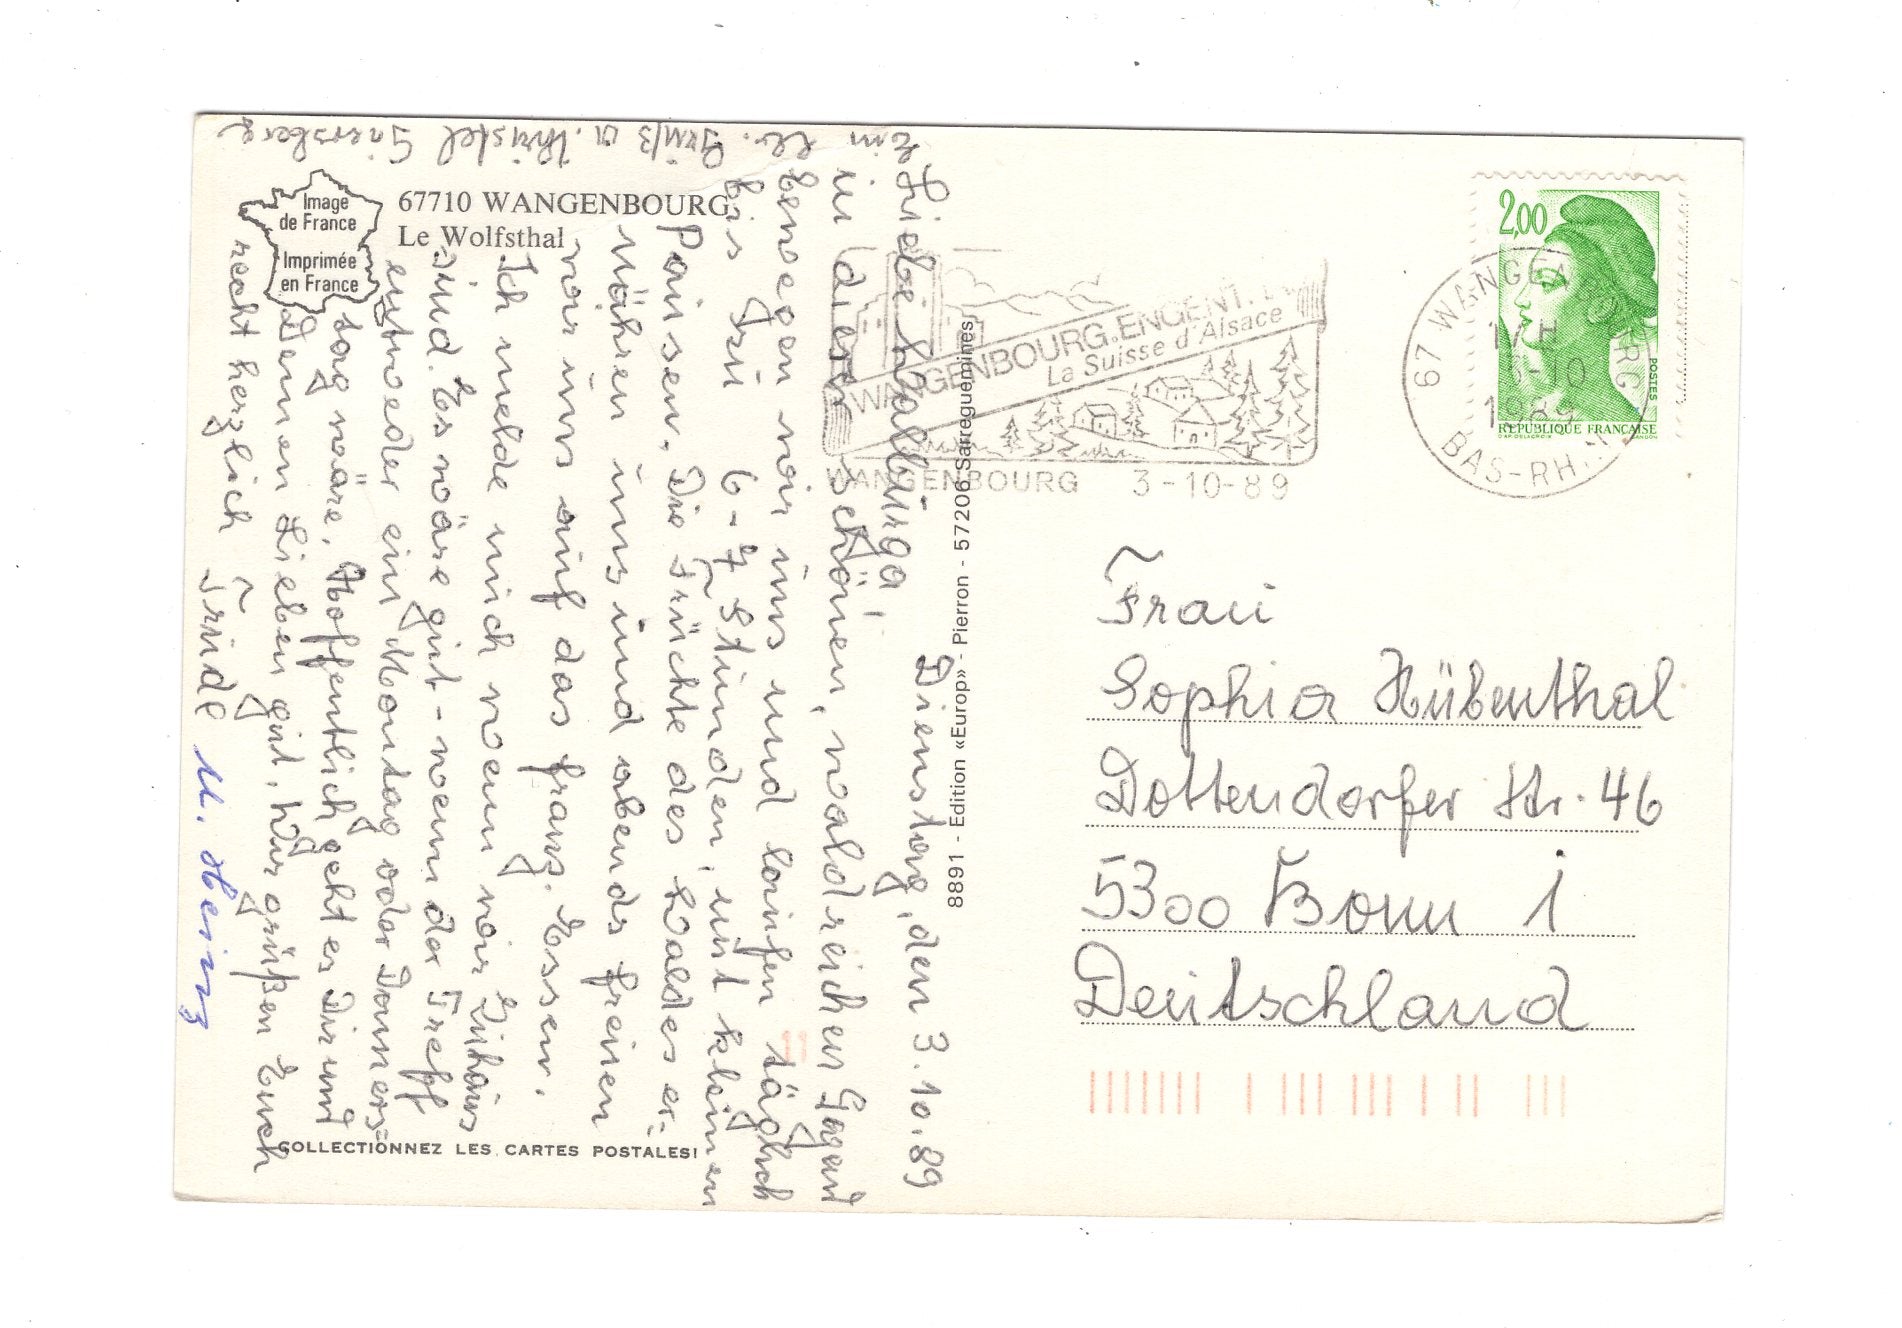 67710 WANGENBOURG
Le Wolfsthal
Image
de France
Imprimée
en France
Dienstag, den 3.10.89
Liebe Wallburga,
in dieser schönen, waldreichen Gegend
bewegen wir uns und laufen täglich
bis zu 6-7 Stunden, mit kleinen
Pausen. Die Früchte des Waldes er=
nähren uns und abends freuen
wir uns auf das franz. Essen.
Ich melde mich wenn wir zuhaus
sind. Es wäre gut - wenn der Treff
entweder ein Montag oder Donners=
tag wäre. Hoffentlich geht es Dir und
Deinen Lieben gut. Wir grüßen Euch
recht herzlich Trudl M. Hering
Ein lb. Gruß a. Christel
COLLECTIONNEZ LES CARTES POSTALES!
8891 - Edition «Europ» - Pierron - 57206 Sarreguemines
WANGENBOURG.ENGENT.
La Suisse d'Alsace
WANGENBOURG 3-10-89
2,00
POSTES
REPUBLIQUE FRANÇAISE
67 WANGENBOURG
17H
3-10
1989
BAS-RHIN
Frau
Sophia Hübenthal
Dottendorfer Str. 46
5300 Bonn 1
Deutschland